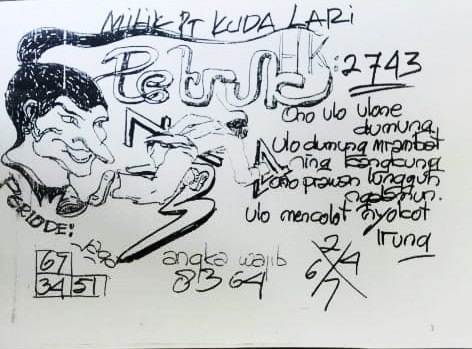 MILIK PT KUDA LARI
Petruk HK: 2743
Ono ulo ulone
dumung
ulo dumung mrambat
ning kangkung
ono prawan lungguh
ngelamun.
ulo mencolot nyokot
irung
PERIODE:
67
34 51
angka wajib
83 64
2
6 4
7